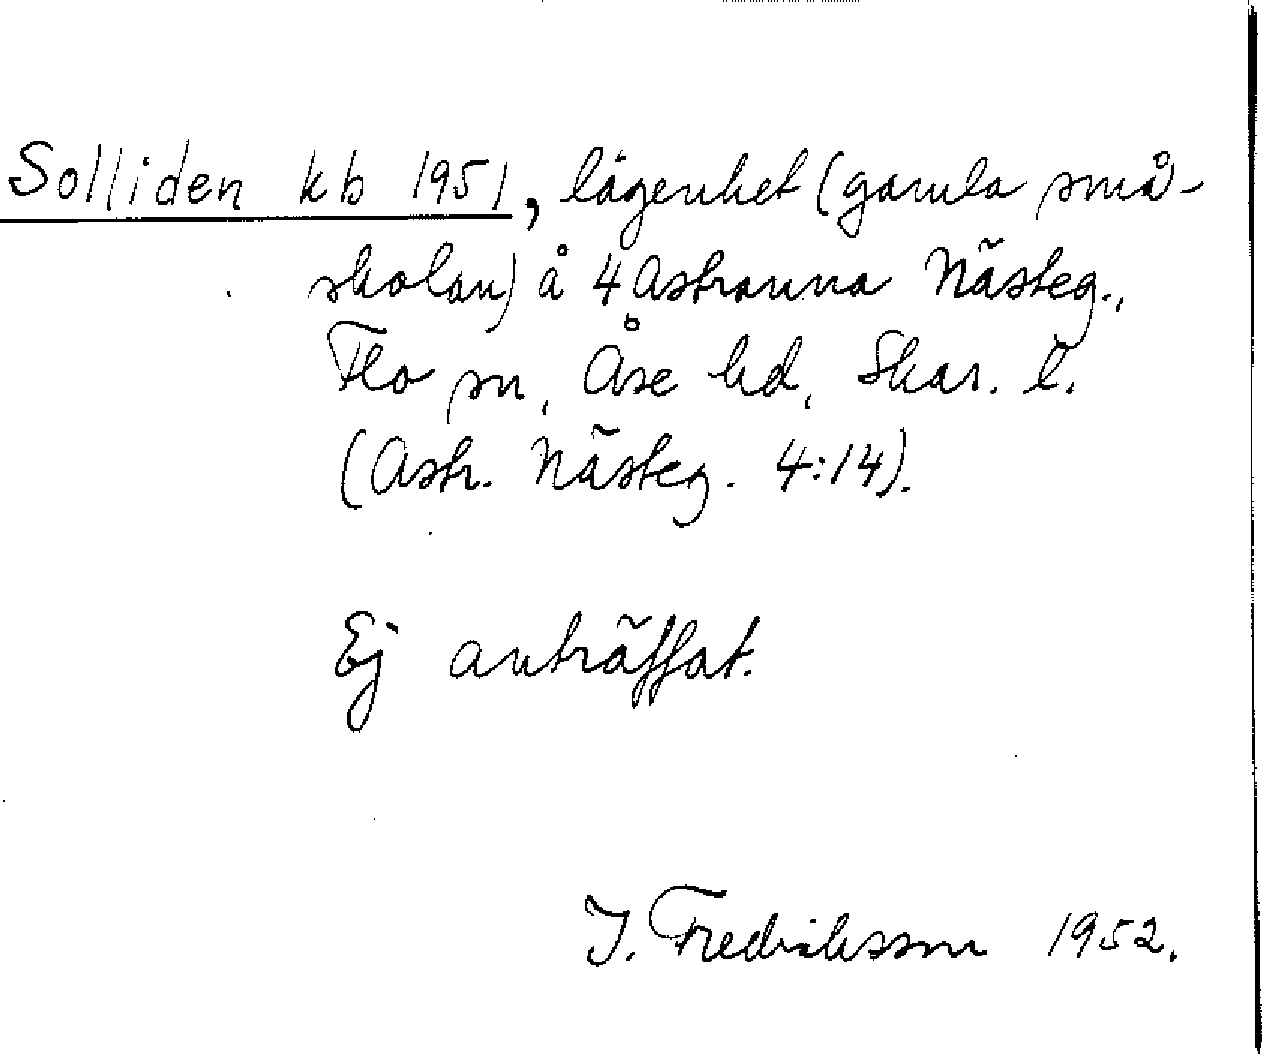 Solliden kb 1951, lägenhet (gamla små-
skolan) å 4 Astranna Nästeg.,
Flo sn, Åse hd, Skar. l.
(Astr. Nästeg. 4:14).
Ej anträffat.
I. Fredriksson 1952.